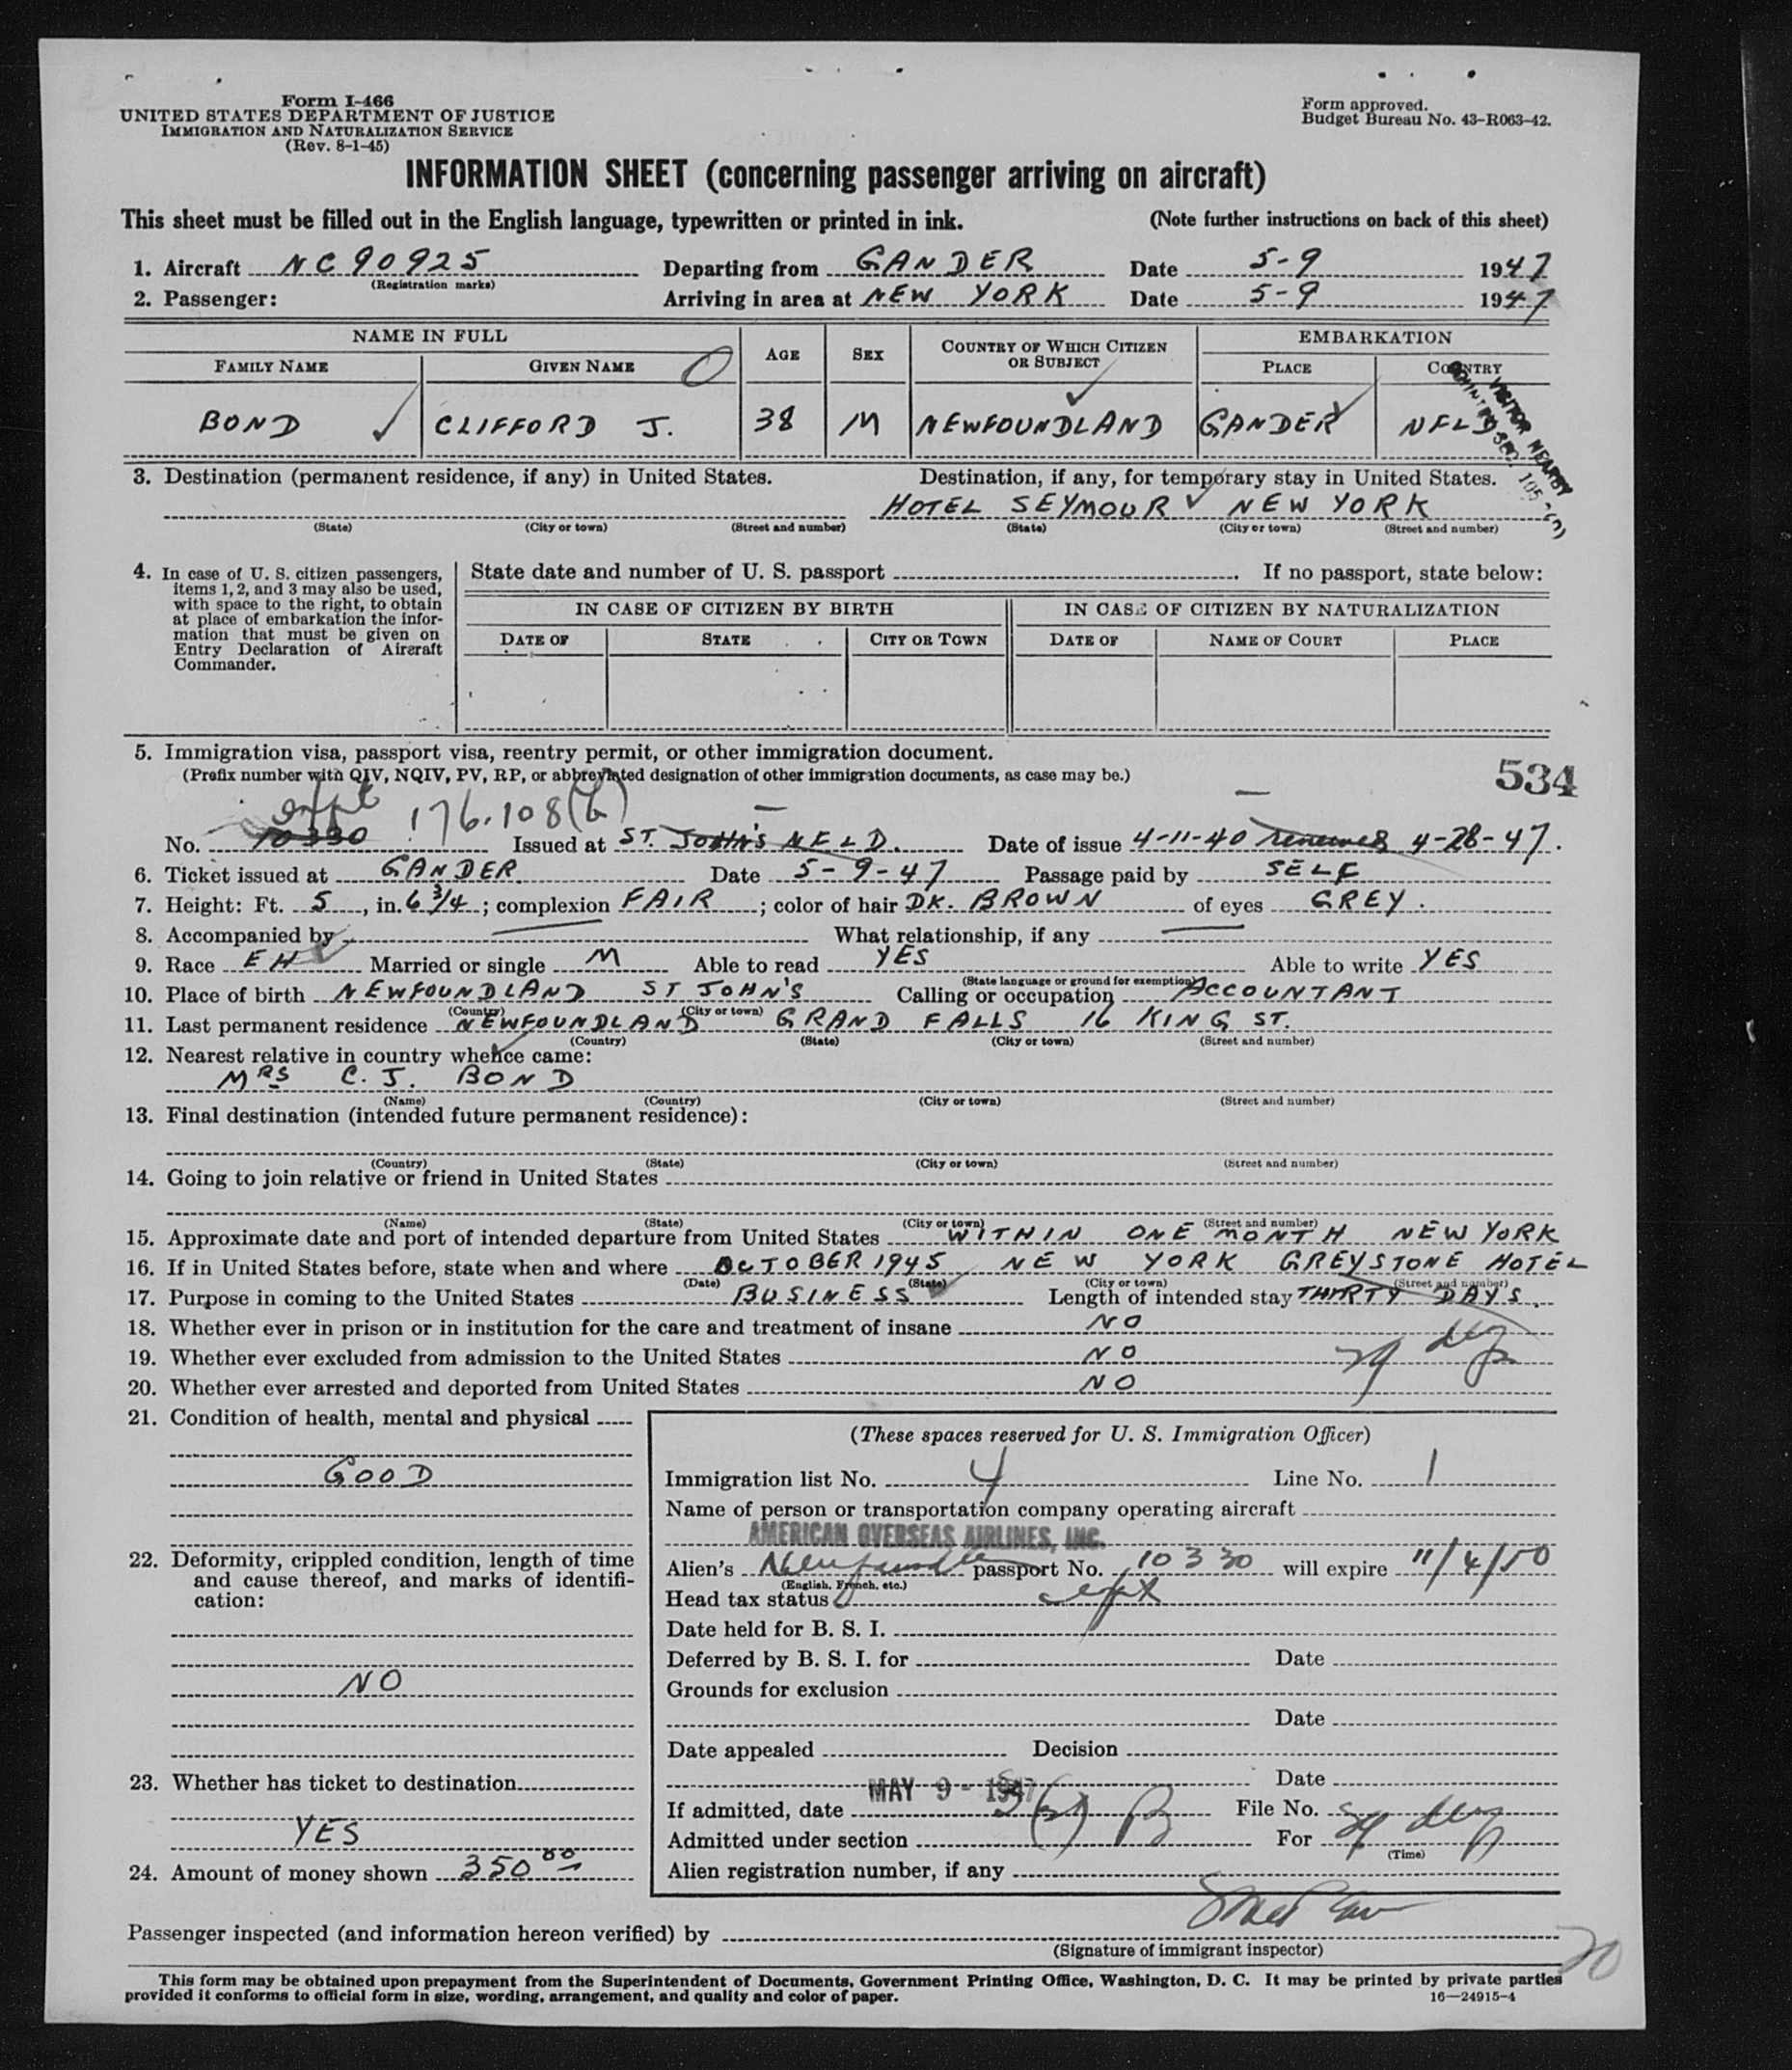 Form I-466
UNITED STATES DEPARTMENT OF JUSTICE
IMMIGRATION AND NATURALIZATION SERVICE
(Rev. 8-1-45)
Form approved.
Budget Bureau No. 43-R063-42.
INFORMATION SHEET (concerning passenger arriving on aircraft)
This sheet must be filled out in the English language, typewritten or printed in ink. (Note further instructions on back of this sheet)
1. Aircraft NC90925 Departing from GANDER Date 5-9 1947
(Registration marks)
2. Passenger: Arriving in area at NEW YORK Date 5-9 1947
NAME IN FULL AGE SEX COUNTRY OF WHICH CITIZEN OR SUBJECT EMBARKATION
FAMILY NAME GIVEN NAME PLACE COUNTRY
BOND CLIFFORD J. 38 M NEWFOUNDLAND GANDER NFLD
3. Destination (permanent residence, if any) in United States. Destination, if any, for temporary stay in United States.
HOTEL SEYMOUR NEW YORK
(State) (City or town) (Street and number) (State) (City or town) (Street and number)
4. In case of U. S. citizen passengers, items 1, 2, and 3 may also be used, with space to the right, to obtain at place of embarkation the information that must be given on Entry Declaration of Aircraft Commander.
State date and number of U. S. passport . If no passport, state below:
IN CASE OF CITIZEN BY BIRTH IN CASE OF CITIZEN BY NATURALIZATION
DATE OF STATE CITY OR TOWN DATE OF NAME OF COURT PLACE
5. Immigration visa, passport visa, reentry permit, or other immigration document.
(Prefix number with QIV, NQIV, PV, RP, or abbreviated designation of other immigration documents, as case may be.)
534
176.108(b)
No. 10330 Issued at ST. JOHN'S NFLD. Date of issue 4-11-40 renewed 4-28-47.
6. Ticket issued at GANDER Date 5-9-47 Passage paid by SELF
7. Height: Ft. 5, in. 6 3/4; complexion FAIR; color of hair DK. BROWN of eyes GREY.
8. Accompanied by — What relationship, if any —
9. Race EH Married or single M Able to read YES Able to write YES
(State language or ground for exemption)
10. Place of birth NEWFOUNDLAND ST JOHN'S Calling or occupation ACCOUNTANT
(Country) (City or town)
11. Last permanent residence NEWFOUNDLAND GRAND FALLS 16 KING ST.
(Country) (State) (City or town) (Street and number)
12. Nearest relative in country whence came:
MRS C. J. BOND
(Name) (Country) (City or town) (Street and number)
13. Final destination (intended future permanent residence):
(Country) (State) (City or town) (Street and number)
14. Going to join relative or friend in United States
(Name) (State) (City or town) (Street and number)
15. Approximate date and port of intended departure from United States WITHIN ONE MONTH NEW YORK
16. If in United States before, state when and where OCTOBER 1945 NEW YORK GREYSTONE HOTEL
(Date) (State) (City or town) (Street and number)
17. Purpose in coming to the United States BUSINESS Length of intended stay THIRTY DAYS.
18. Whether ever in prison or in institution for the care and treatment of insane NO
19. Whether ever excluded from admission to the United States NO
20. Whether ever arrested and deported from United States NO
21. Condition of health, mental and physical
GOOD
22. Deformity, crippled condition, length of time
and cause thereof, and marks of identifi-
cation:
NO
23. Whether has ticket to destination
YES
24. Amount of money shown 350 00
(These spaces reserved for U. S. Immigration Officer)
Immigration list No. 4 Line No. 1
Name of person or transportation company operating aircraft
AMERICAN OVERSEAS AIRLINES, INC.
Alien's passport No. 10330 will expire 11/4/50
(English, French, etc.)
Head tax status
Date held for B. S. I.
Deferred by B. S. I. for Date
Grounds for exclusion
Date
Date appealed Decision
Date
MAY 9 - 1947
If admitted, date File No.
Admitted under section For
(Time)
Alien registration number, if any
Passenger inspected (and information hereon verified) by
(Signature of immigrant inspector)
20
This form may be obtained upon prepayment from the Superintendent of Documents, Government Printing Office, Washington, D. C. It may be printed by private parties
provided it conforms to official form in size, wording, arrangement, and quality and color of paper.
16—24915-4